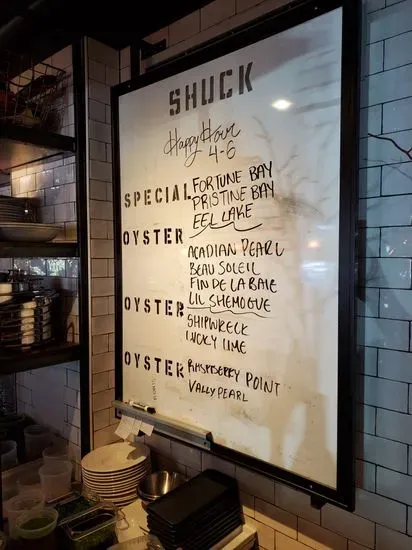 SHUCK
Happy Hour
4-6
SPECIAL FORTUNE BAY
PRISTINE BAY
EEL LAKE
OYSTER
ACADIAN PEARL
BEAU SOLEIL
FIN DE LA BAIE
LIL SHEMOGUE
OYSTER SHIPWRECK
LUCKY LIME
OYSTER RASPBERRY POINT
VALLY PEARL